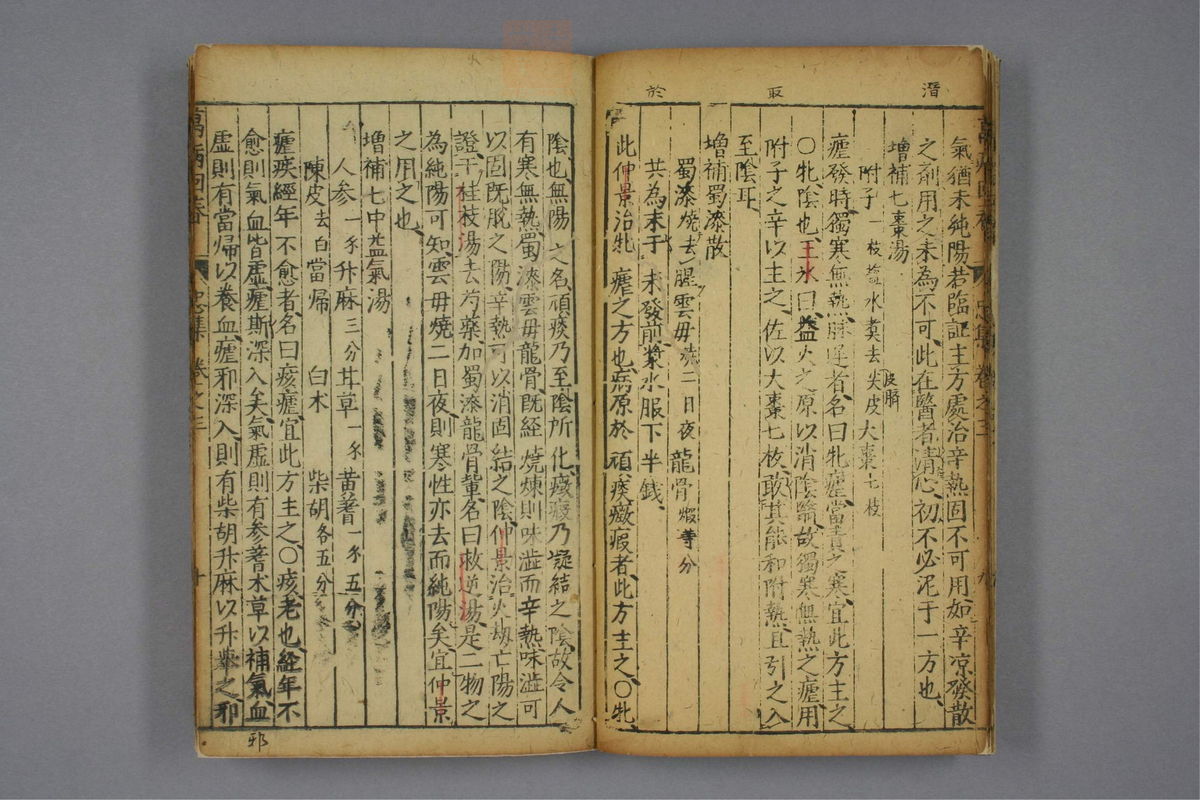 潛 取 於
氣猶未純陽若臨証主方處治辛熱固不可用如辛凉發散
之劑用之未為不可此在醫者清心初不必泥于一方也
增補七棗湯
附子一枝塩水煑去尖皮皮臍 大棗七枝
瘧發時獨寒無熱脉遲者名曰牝瘧當責之寒宜此方主之
〇牝陰也王氷曰益火之原以消陰翳故獨寒無熱之瘧用
附子之辛以主之佐以大棗七枚取其能和附熱且引之入
至陰耳
增補蜀漆散
蜀漆燒去腥 雲毋燒二日夜 龍骨煅等分
共為末于未發前漿水服下半錢
此仲景治牝瘧之方也病原於頑痰癥瘕者此方主之〇牝
陰也無陽之名頑痰乃至陰所化癥瘕乃凝結之陰故令人
有寒無熱蜀漆雲毋龍骨既經燒煉則味澁而辛熱味澁可
以固既脫之陽辛熱可以消固結之陰仲景治火劫亡陽之
證干桂枝湯去芍藥加蜀漆龍骨輩名曰救逆湯是二物之
為純陽可知雲毋燒二日夜則寒性亦去而純陽矣宜仲景
之用之也
增補七中益氣湯
人参一戔 升麻三分 甘草一戔 黃蓍一戔五分
陳皮去白 當帰 白术 柴胡各五分
瘧疾經年不愈者名曰痎瘧宜此方主之〇痎老也經年不
愈則氣血皆虛瘧斯深入矣氣虛則有参蓍术草以補氣血
虛則有當帰以養血瘧邪深入則有柴胡升麻以升舉之邪
萬病回春 忠集 卷之三 十
邪